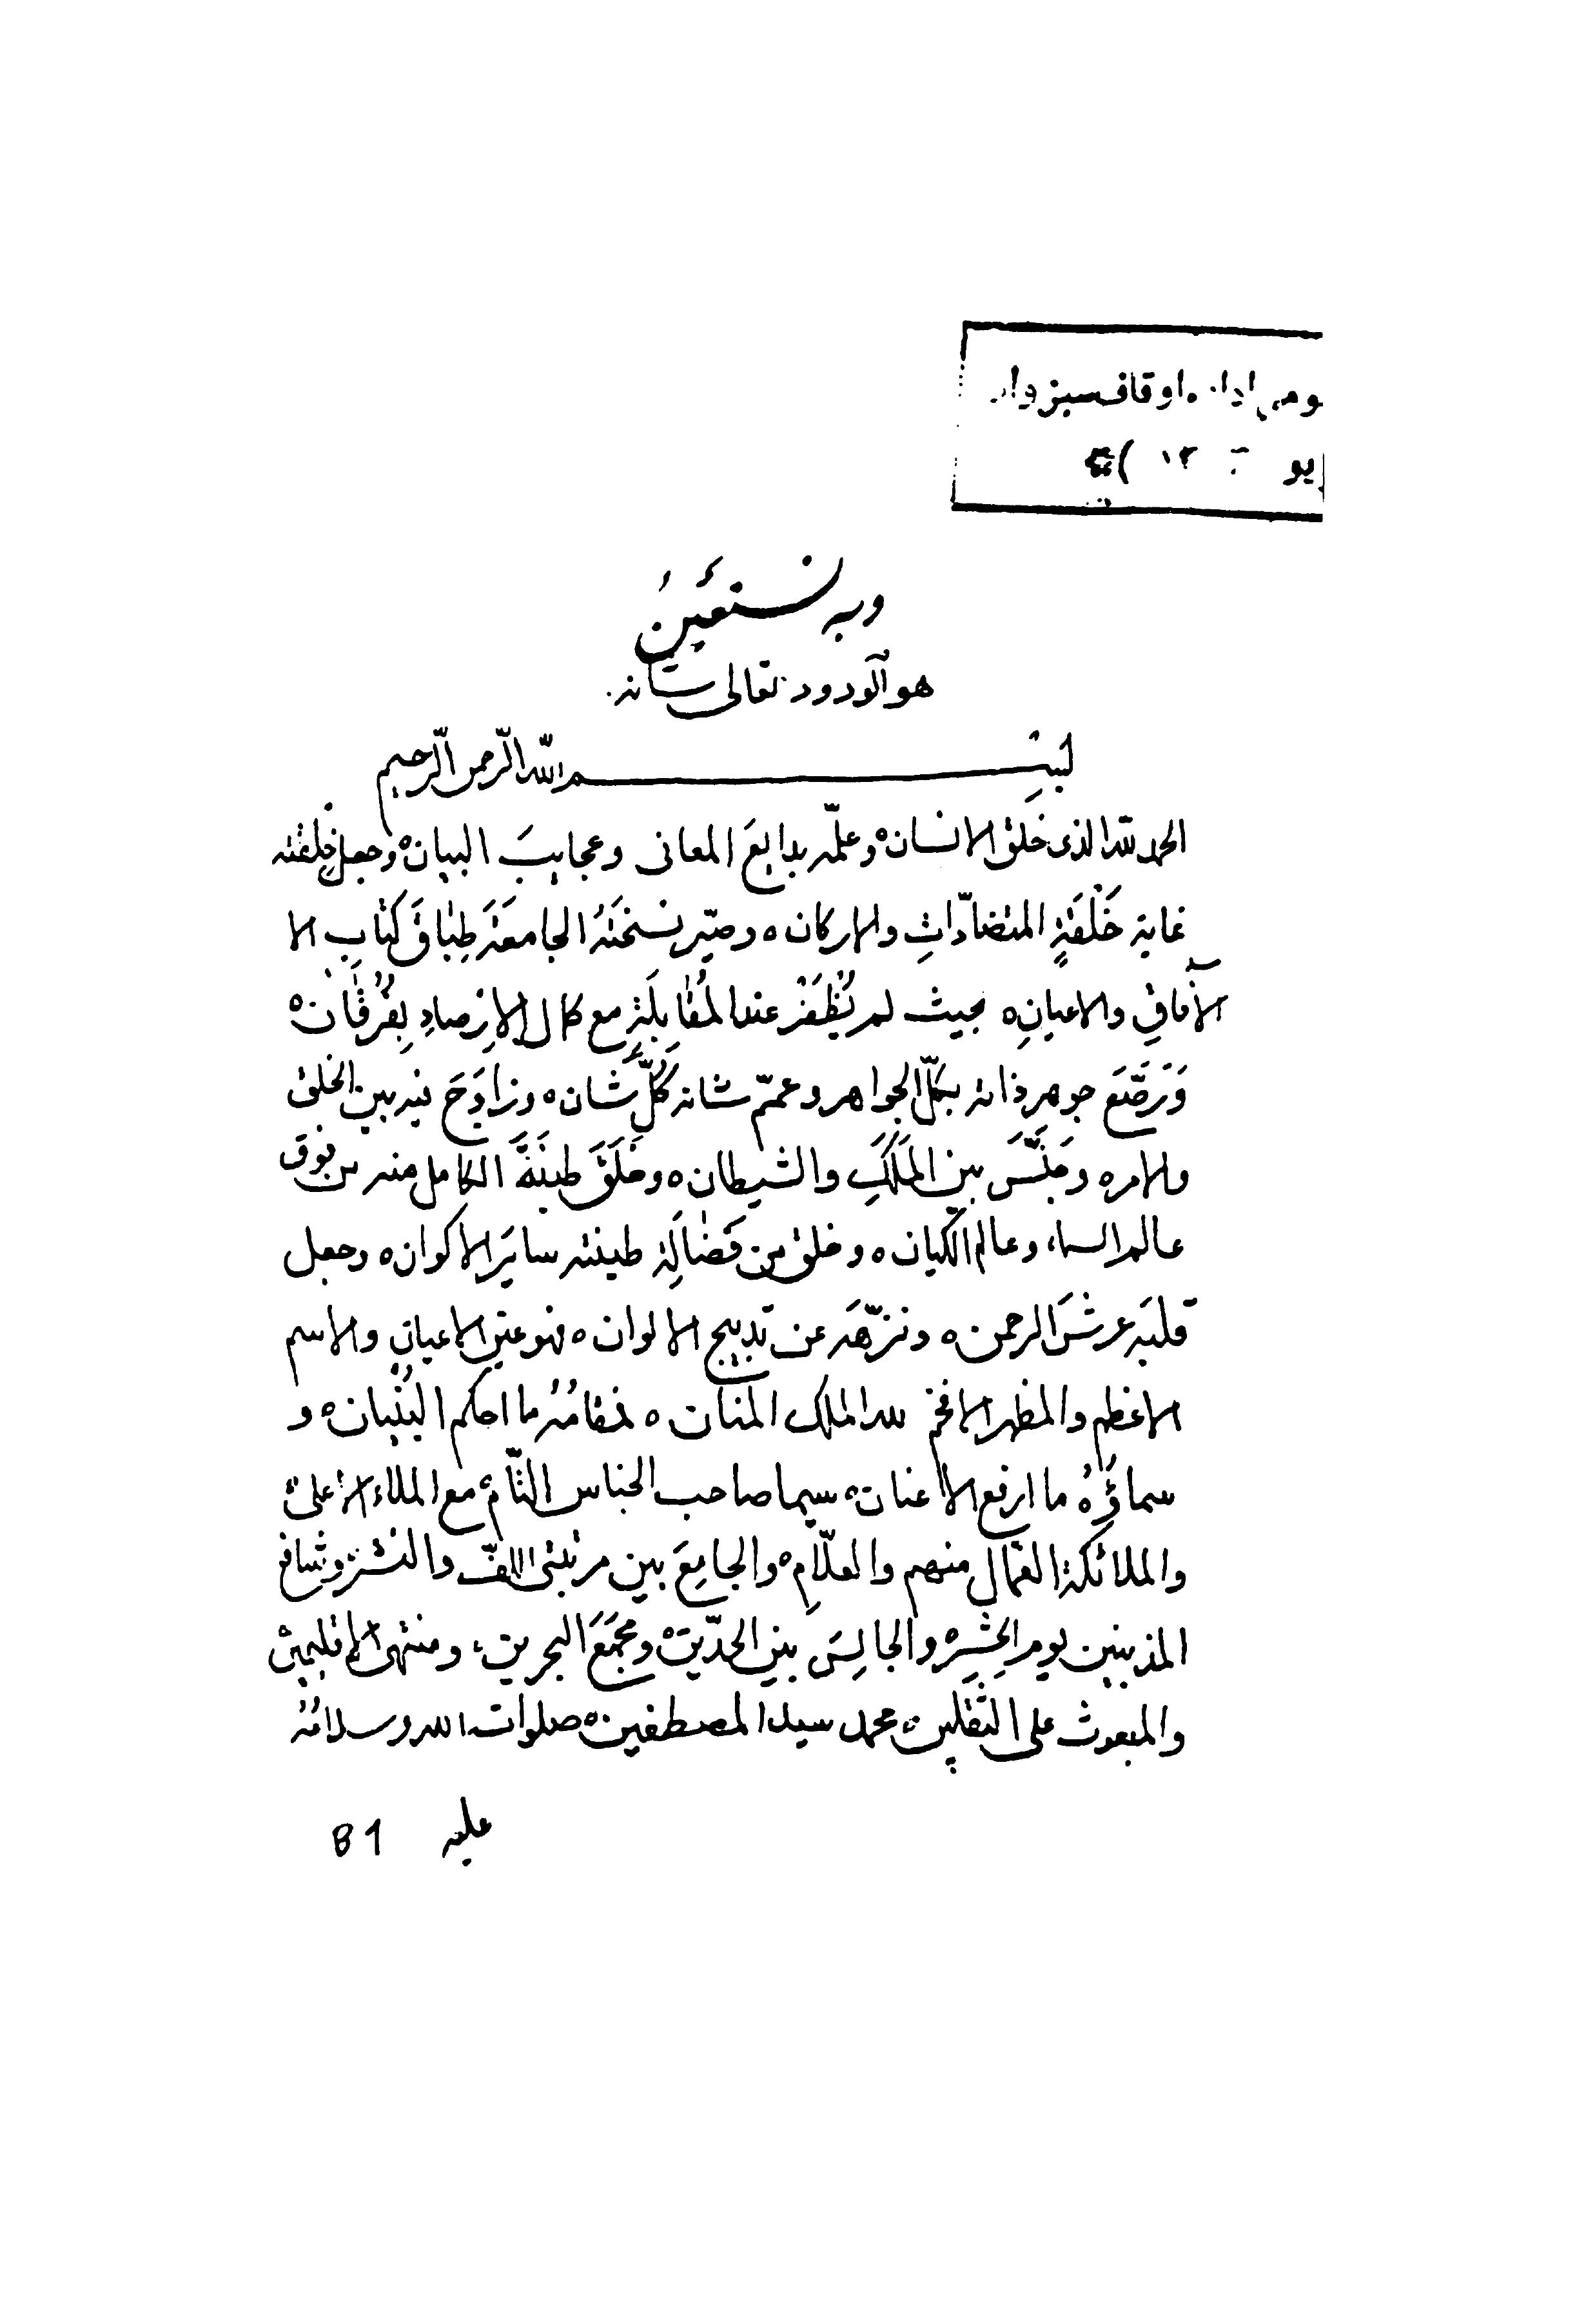 اوقاف سبزوار
۱۳
وبه نستعین
هو الودود تعالی شانه
بسم الله الرحمن الرحیم
الحمد لله الذی خلق الانسان ه وعلّمه بدایعَ المعانی وعجایبَ البیان ه وجعل خِلقته
غایة خَلْقَةِ المتضادّاتِ والارکان ه وصیّر نسختَهُ الجامعَةَ طِبَاقَ کتابِ الا
الآفاقِ والاعیانِ ه بحیث لم یُظْفَرْ عند المُقابِلَةِ مع کمال الاِرْصادِ بِفُرْقَان ه
وَرَصَّعَ جوهر ذاته بکلّ الجواهر وعمّم شانه کُلَّ شَان ه وزاوَجَ فیه بین الخلق
والامر ه وجَنَّسَ بین المَلَکِ والشیطان ه وخَلَقَ طینَةَ الکامل منه من فوق
عالم السماء وعالم الکیان ه وخلق من فَضٰالَةِ طینته سایَر الاکوان ه وجعل
قلبَه عرشَ الرحمن ه ونزّهَه عن تدبیج الالوان ه فهو عین الاعیانِ والاسم
الاعظم والمظهر الافخم لله الملک المنان ه فمقامُهُ ما احکم البُنْیان ه و
سماؤُهُ ما ارفع الاعنان ه سیما صاحب الجناس التّام ه مع الملاء الاعلیٰ
والملائکة العمّال منهم والعلّامِ ه والجامِعَ بین مرتبتی اللّف والنشر وشافع
المذنبین یوم الحشِر ه والجالِسَ بین الحدّین ه ومجمَعَ البحرین ومنتهی الاقلیمین
والمبعوث علی الثقلین ه محمد سید المصطفین ه صلوات الله وسلامُهُ
علیه B1